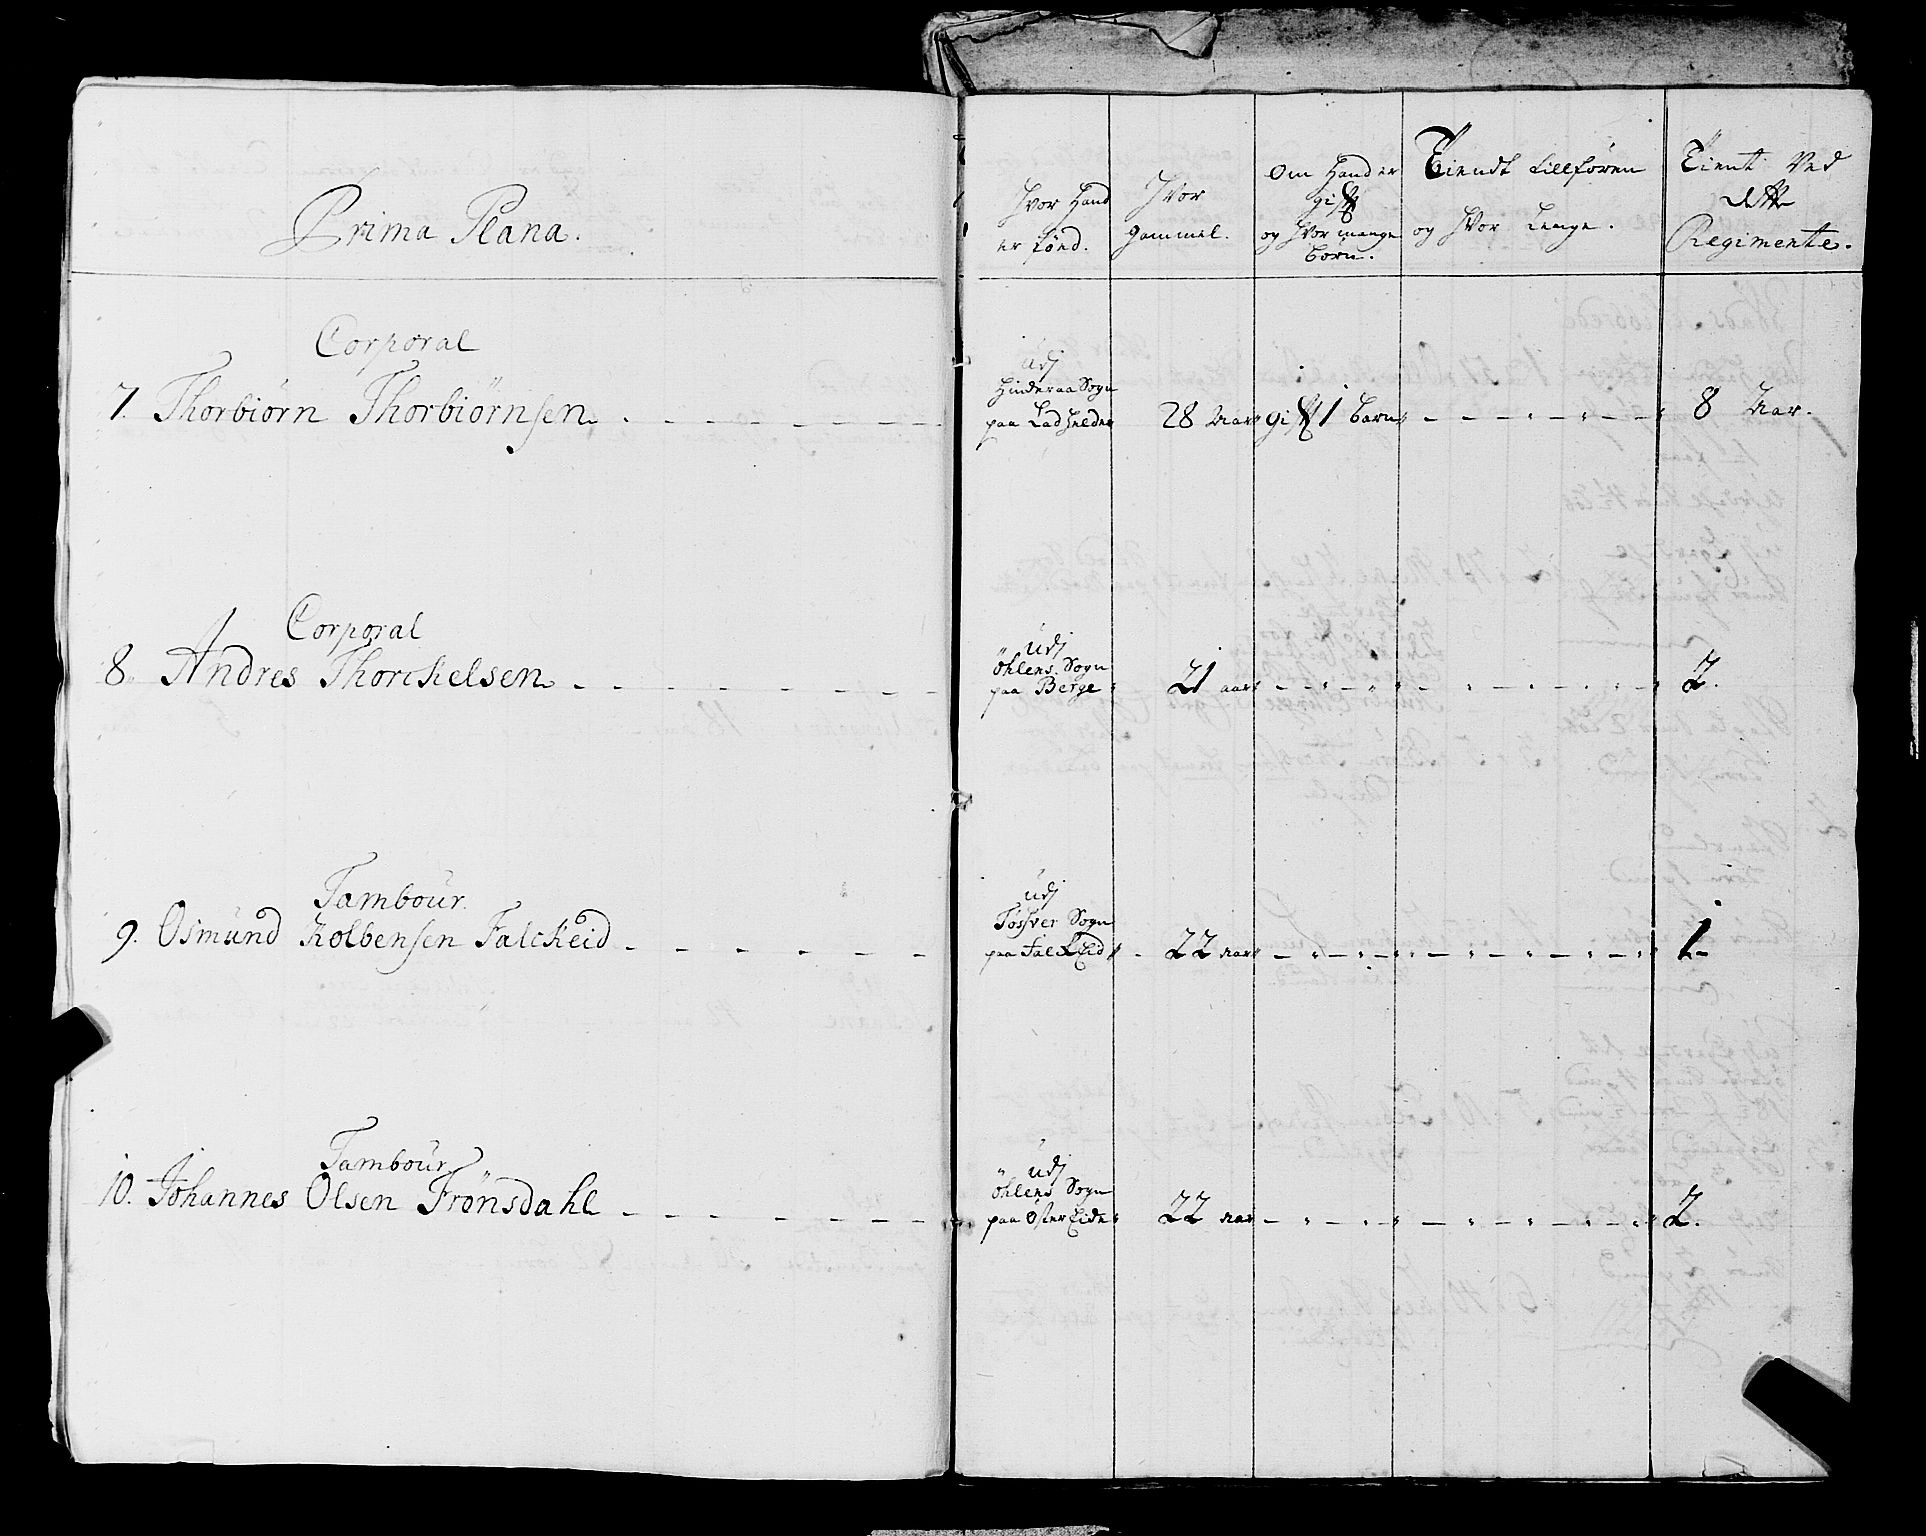 Prima Plana.
Hvor Hand
er fönd.
Hvor
Gammel.
Om Hand er
gift
og Hvor mange
börn.
Tiendt tillforen
og Hvor Lenge.
Tient Ved
dette
Regimente.
Corporal
7. Thorbiörn Thorbiörnsen
Udj
Hinderaa Sogn
paa
28 Aar
gift 1 barn
8 Aar.
Corporal
8. Andres Thorckelsen
Udj
Öhlens Sogn
paa Berge
21 aar
2.
Tambour
9. Osmund Kolbensen Falckeid
Udj
Tösver Sogn
paa Falckeid
22 aar
1
Tambour
10. Johannes Olsen Frönsdahl
Udj
Öhlens Sogn
paa Öster Eide
22 aar
2.